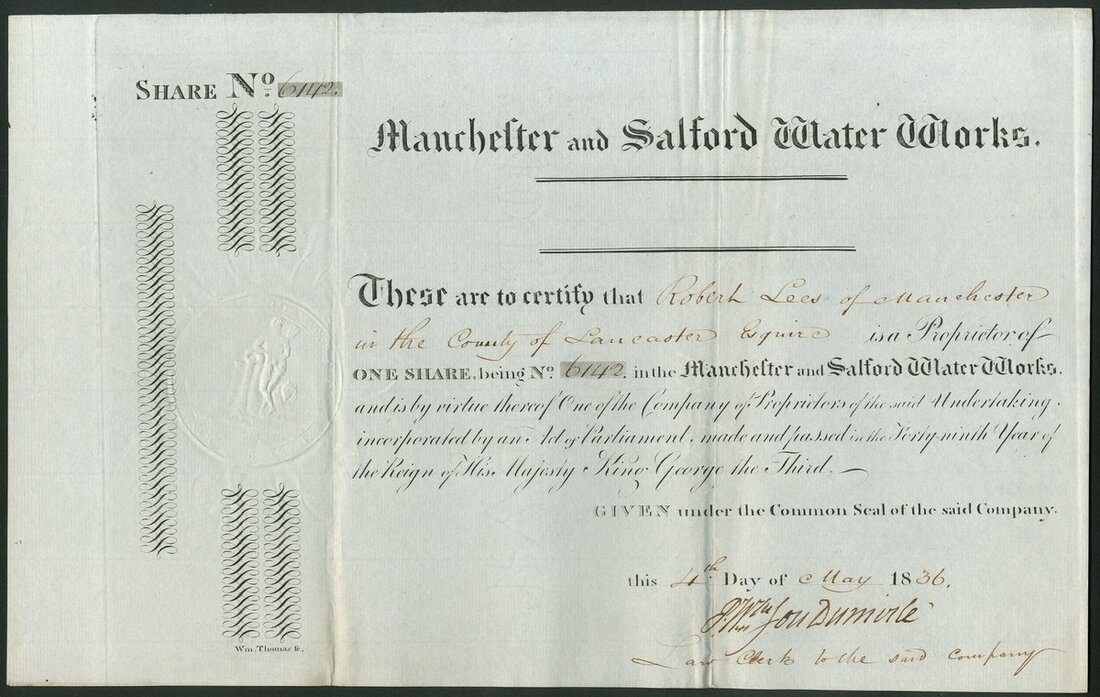 SHARE No. 6142.
Manchester and Salford Water Works.
These are to certify that Robert Lees of Manchester
in the County of Lancaster Esquire is a Proprietor of
ONE SHARE, being No. 6142. in the Manchester and Salford Water Works,
and is by virtue thereof One of the Company of Proprietors of the said Undertaking.
incorporated by an Act of Parliament, made and passed in the Forty-ninth Year of
the Reign of His Majesty King George the Third.
GIVEN under the Common Seal of the said Company.
this 4th Day of May 1836.
Law Clerk to the said company
Wm. Thomas fc.